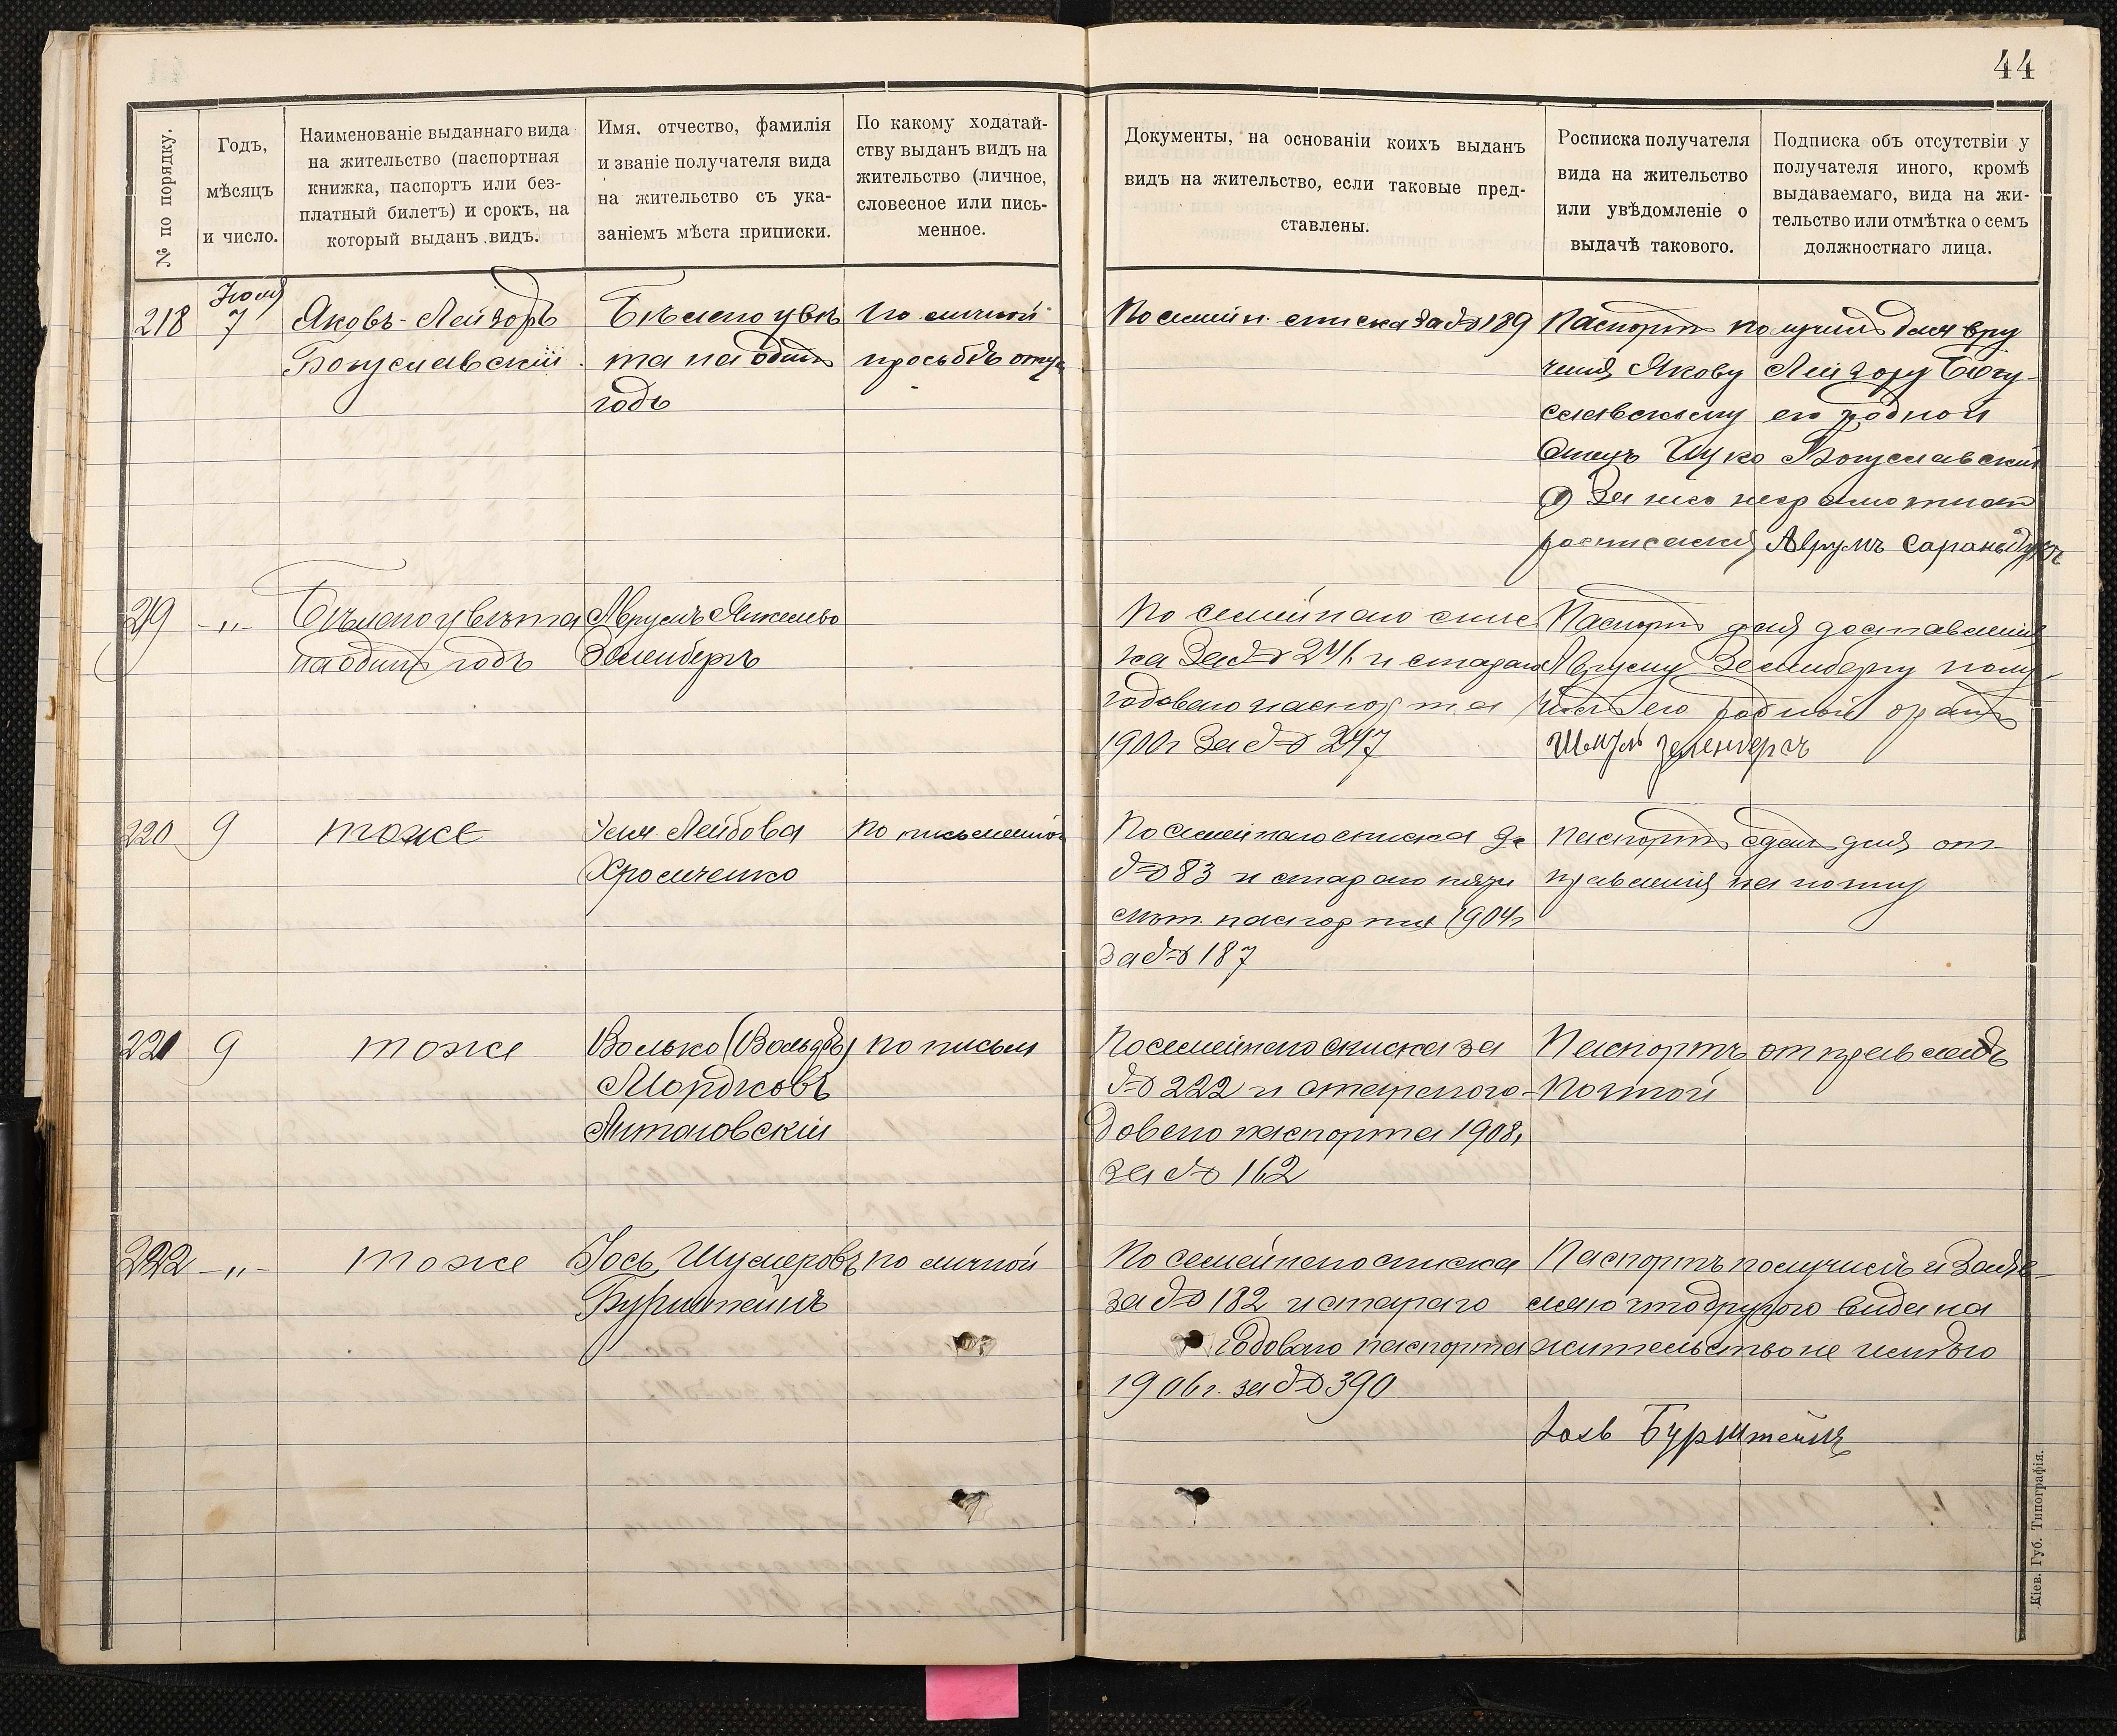 44
№ по порядку.
Годъ,
мѣсяцъ
и число.
Наименованіе выданнаго вида
на жительство (паспортная
книжка, паспортъ или без-
платный билетъ) и срокъ, на
который выданъ видъ.
Имя, отчество, фамилія
и званіе получателя вида
на жительство съ ука-
заніемъ мѣста приписки.
По какому ходатай-
ству выданъ видъ на
жительство (личное,
словесное или пись-
менное.
Документы, на основаніи коихъ выданъ
видъ на жительство, если таковые пред-
ставлены.
Росписка получателя
вида на жительство
или увѣдомленіе о
выдачѣ такового.
Подписка объ отсутствіи у
получателя иного, кромѣ
выдаваемаго, вида на жи-
тельство или отмѣтка о семъ
должностнаго лица.
218
7
Яковъ-Лейзоръ
Богуславскій
Бѣлого цвѣ
та на одинъ
годъ
по личной
просьбѣ отца
По семейн. списка за № 189
Паспортъ получилъ для вру
ченія Якову Лейзору Богу-
славскому его родной
Отецъ Ицко Богуславскій
За него неграмотнаго
росписался Аврумъ
219 -„-
Бѣлаго цвѣта
на одинъ годъ
Аврумъ Янкелево
Зеленбергъ
По семейнаго спис
ка За № 246 и стараго
годоваго паспорта
1900г За № 247
Паспортъ для доставленія
Авруму Зеленбергу полу-
чилъ его родной братъ
Шмуль Зеленбергъ
220 9
тоже
Лейбова
Хромченко
по письменной
По семейнаго списка За
№ 83 и стараго пяти
лѣт. паспорта 1904г
За № 187
Паспортъ сданъ для от-
правленія на почту
221 9
тоже
Волько (Вольфъ)
Мордковъ
по письм
По семейнаго списка за
№ 222 и стараго го-
доваго паспорта 1908г
за № 162
Паспортъ отправленъ
Почтой
222 -„-
тоже
Іось Шулеровъ
Бурштейнъ
по личной
По семейнаго списка
за № 182 и стараго
годоваго паспорта
1906г. за № 390
Паспортъ получилъ и заяв-
ляю что другого вида на
жительство не имѣю
Іось Бурштейнъ
Кіев. Губ. Типографія.